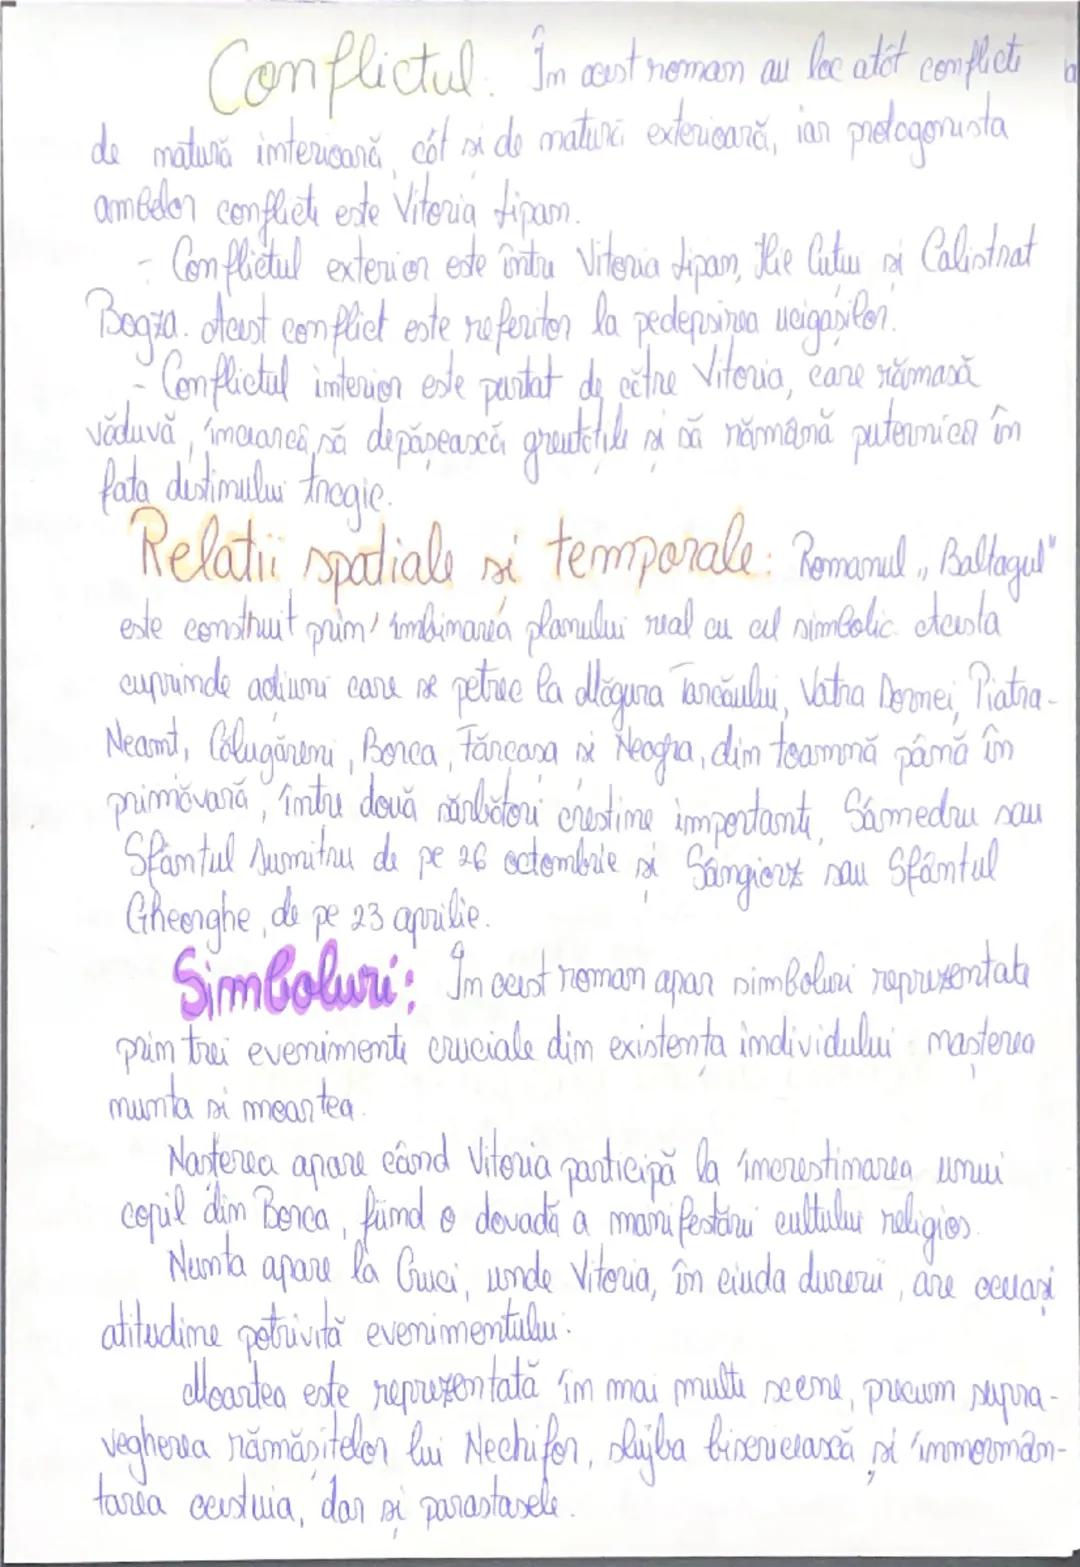 Conflictul. În acest roman au loc atât conflicte
de natură interioară, cât si de natură exterioară, iar protagonista
ambelor conflicte este Vitoria Lipan.
- Conflictul exterior este între Vitoria Lipan, Ilie Cutui si Calistrat
Bogza. Acest conflict este referitor la pedepsirea ucigașilor.
- Conflictul interior este purtat de către Vitoria, care rămasă
văduvă, încearcă să depășească greutățile si să rămână puternică în
fața destinului tragic.
Relatii spatiale si temporale: Romanul „Baltagul"
este construit prin îmbinarea planului real cu cel simbolic. Acesta
cuprinde acțiuni care se petrec la Măgura Tarcăului, Vatra Dornei, Piatra-
Neamt, Călugăreni, Borca, Fărcașa si Neagra, din toamnă până în
primăvară, între două sărbători creștine importante, Sâmedru sau
Sfântul Dumitru de pe 26 octombrie și Sângiorz sau Sfântul
Gheorghe, de pe 23 aprilie.
Simboluri: În acest roman apar simboluri reprezentate
prin trei evenimente cruciale din existența individului: nașterea
nunta si moartea.
Nașterea apare când Vitoria participă la încreștinarea unui
copil din Borca, fiind o dovadă a manifestării cultului religios.
Nunta apare la Cruci, unde Vitoria, în ciuda durerii, are aceeași
atitudine potrivită evenimentului.
Moartea este reprezentată în mai multe scene, precum supra-
vegherea rămășițelor lui Nechifor, slujba bisericească și înmormân-
tarea acestuia, dar și parastasele.